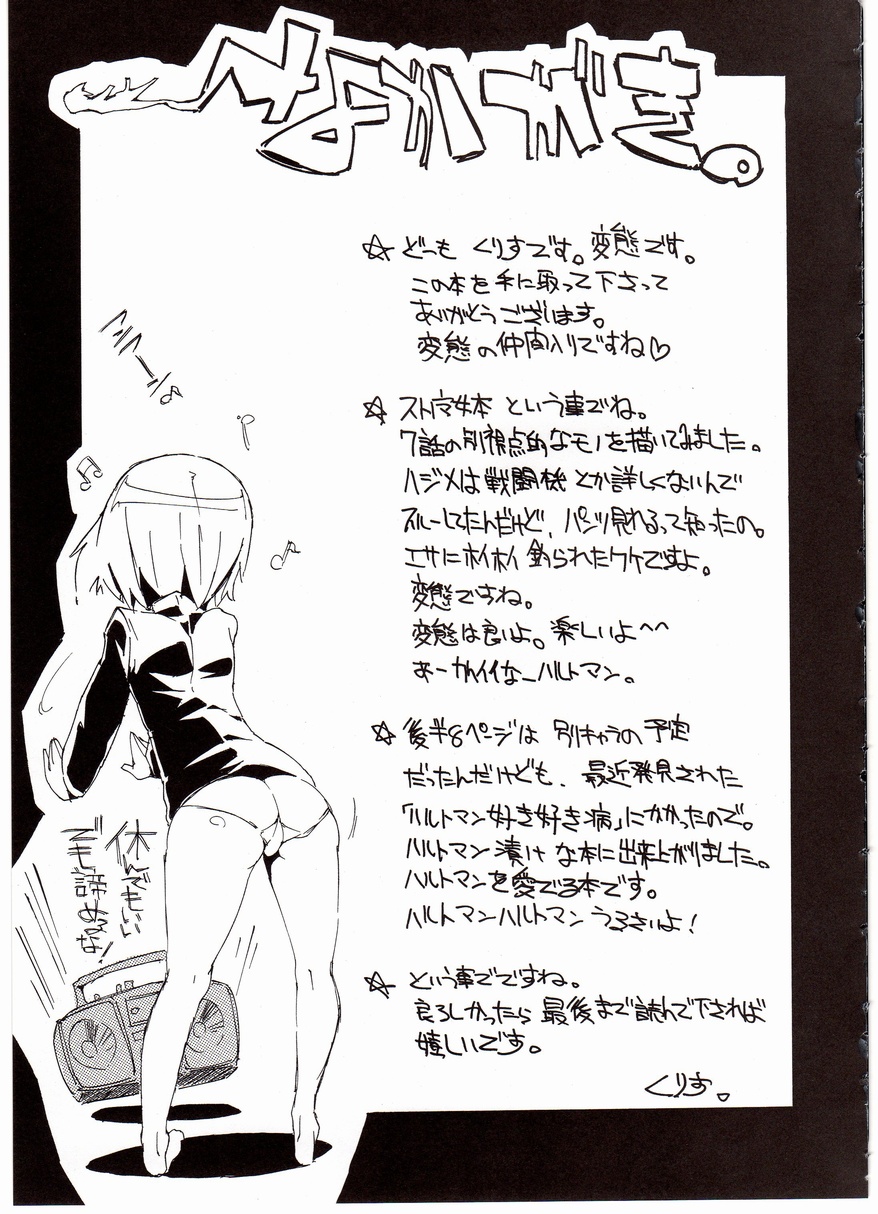 なかがき。
☆ どーも くりすです。変態です。
この本を手に取って下さって
ありがとうございます。
変態の仲間入りですね♡
☆ ストパン本 という事でね。
7話の別視点的なモノを描いてみました。
ハジメは戦闘機とか詳しくないんで
スルーしてたんだけど、パンツ見れるって知ったの。
エサにホイホイ釣られたワケですよ。
変態ですね。
変態は良いよ。楽しいよ^^
あーかわイイなーハルトマン。
☆ 後半8ページは 別キャラの予定
だったんだけども、最近発見された
「ハルトマン好き好き病」にかかったので。
ハルトマン漬けな本に出来上がりました。
ハルトマンを愛でる本です。
ハルトマンハルトマンうるさいよ！
☆ という事でですね。
良ろしかったら最後まで読んで下されば
嬉しいです。
くりす。
休んでもいい
でも諦めるな！